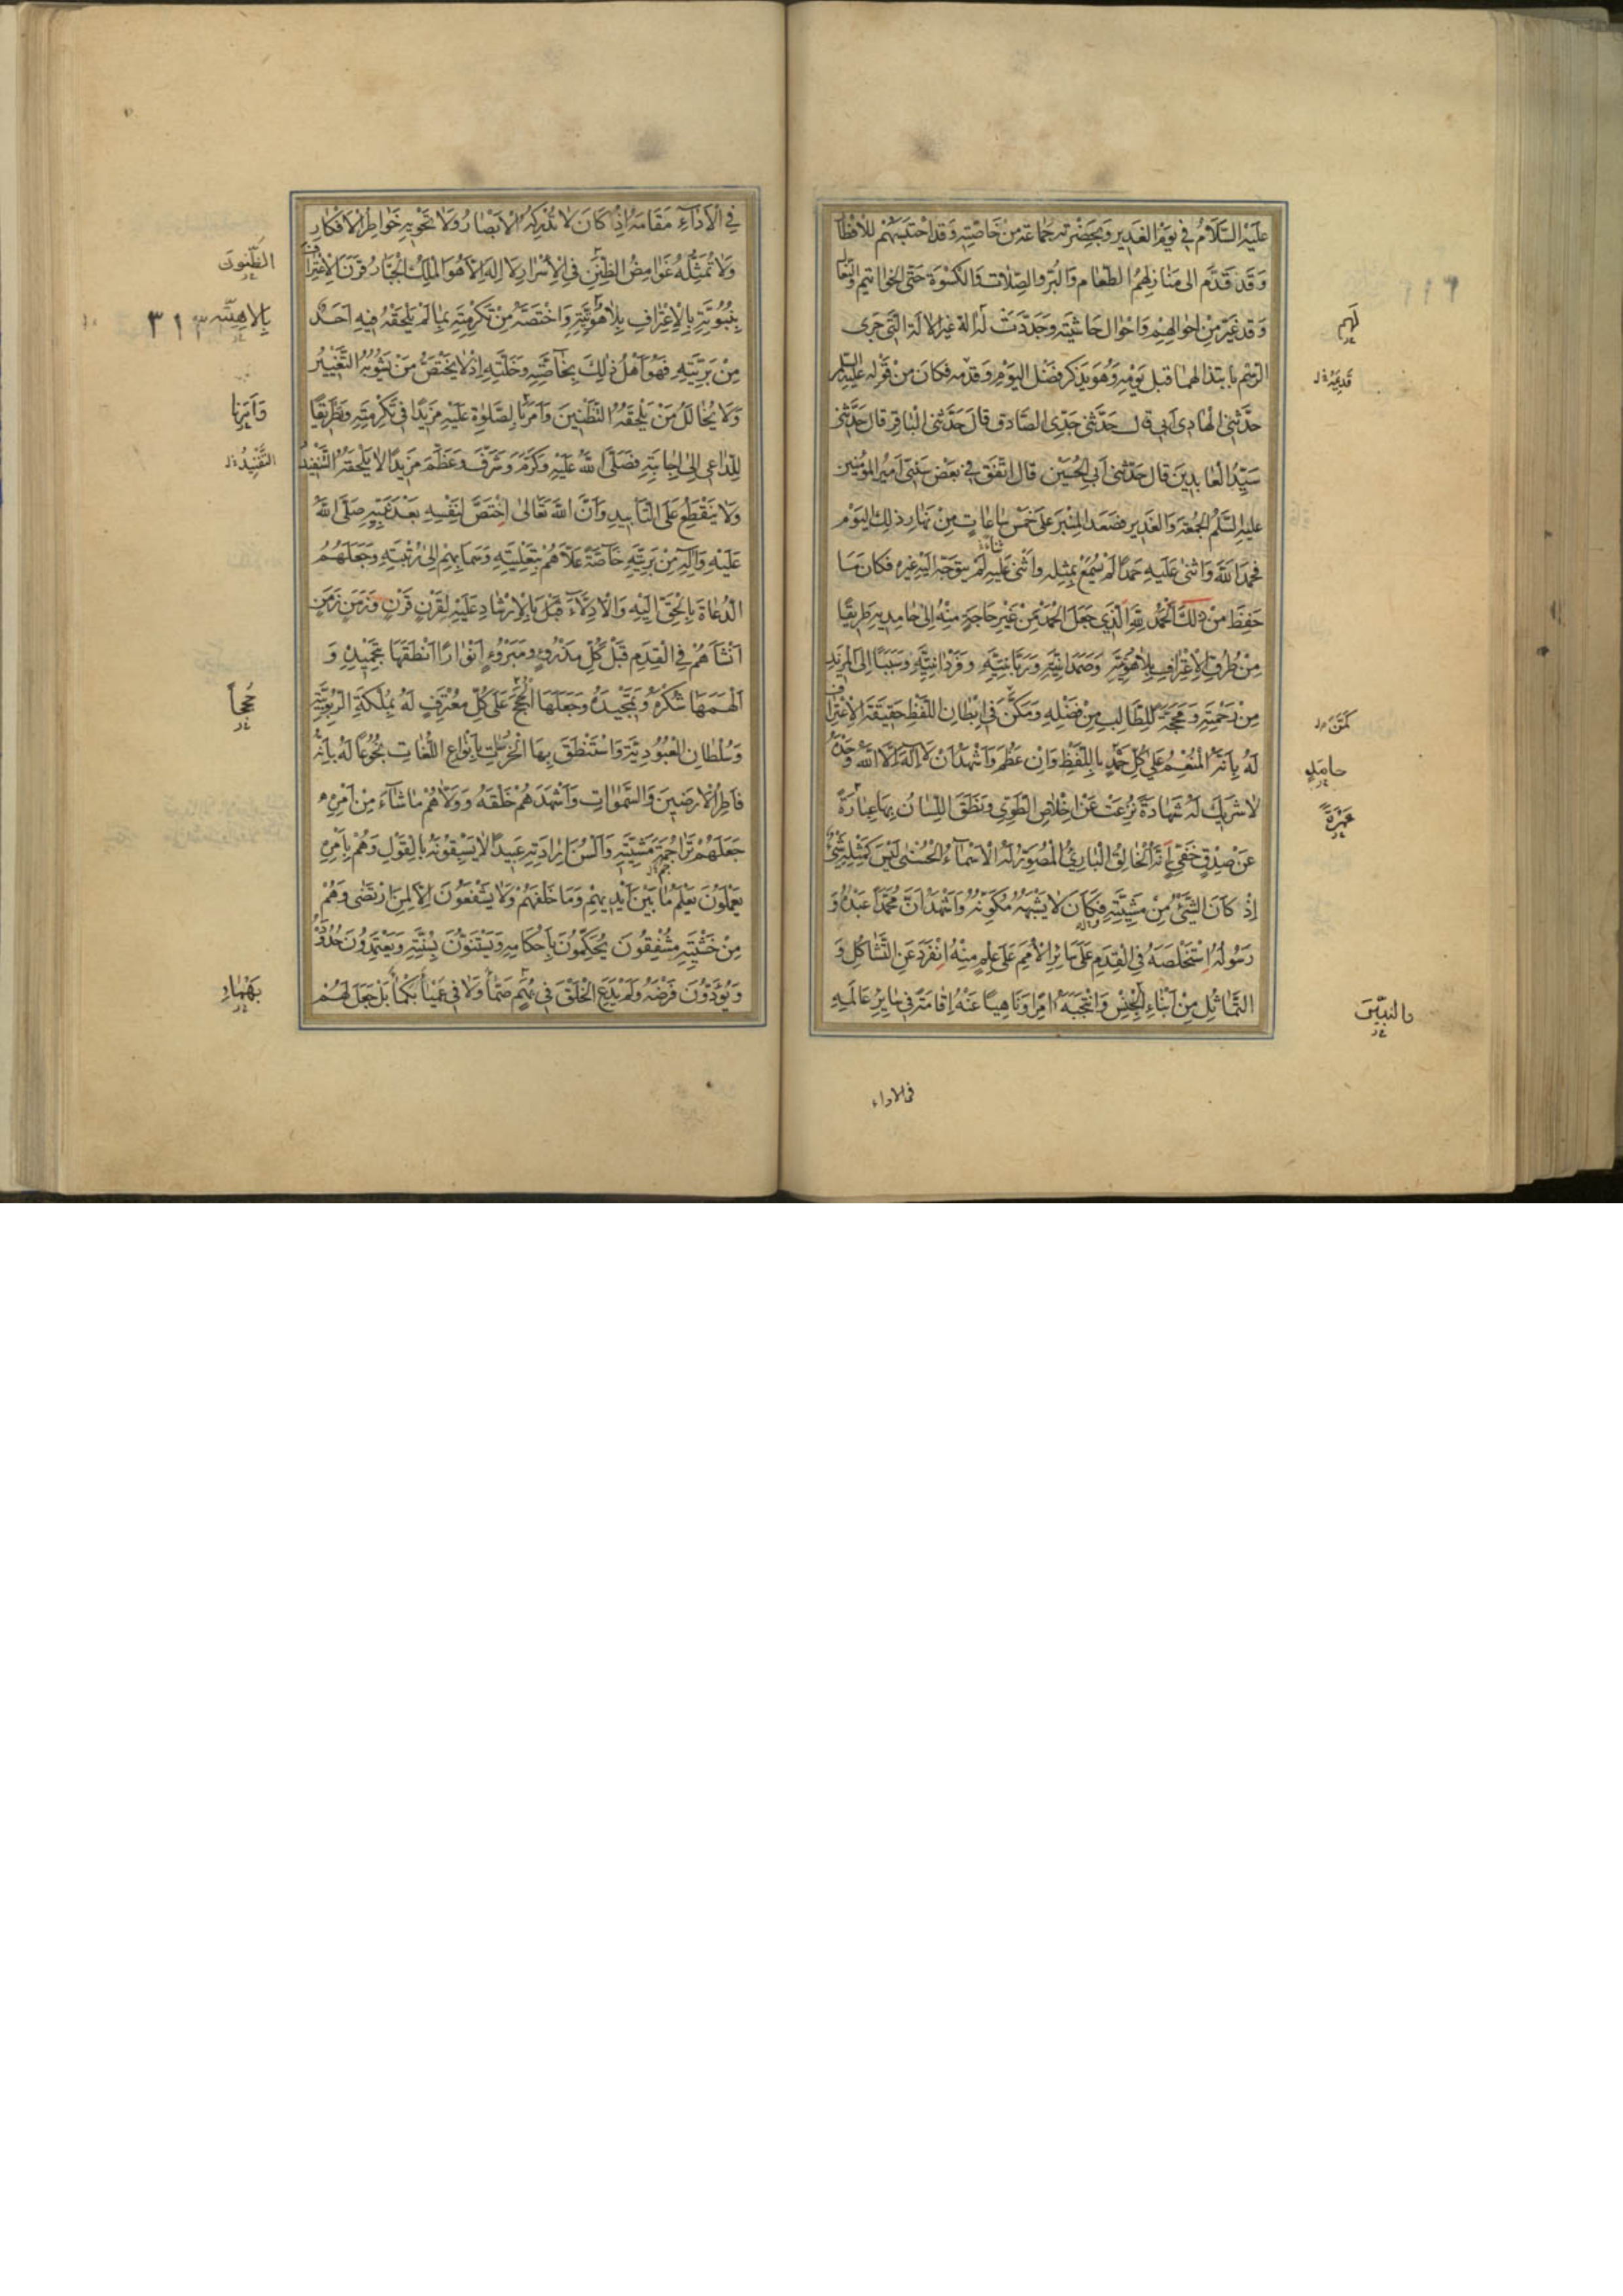 عَلَيْهِ السَّلَامُ فِي يَوْمِ الْغَدِيرِ وَبِحَضْرَتِهِ جَمَاعَةٌ مِنْ خَاصَّتِهِ وَقَدِ احْتَبَسَهُمْ لِلْإِفْطَارِ
وَقَدْ قَدَّمَ إِلَى مَنَازِلِهِمُ الطَّعَامَ وَالْبُرَّ وَالصِّلَاتِ وَالْكِسْوَةَ حَتَّى الْخَوَاتِيمَ وَالنِّعَالَ
وَقَدْ غَيَّرَ مِنْ أَحْوَالِهِمْ وَأَحْوَالِ حَاشِيَتِهِ وَجَدَّدَتْ لَهُ آلَةً غَيْرَ الْآلَةِ الَّتِي جَرَى
الرَّسْمُ بِابْتِذَالِهَا قَبْلَ يَوْمِهِ وَهُوَ يَذْكُرُ فَضْلَ الْيَوْمِ وَقِدَمَهُ فَكَانَ مِنْ قَوْلِهِ عَلَيْهِ السَّلَمُ
حَدَّثَنِي الْهَادِي أَبِي قَالَ حَدَّثَنِي جَدِّي الصَّادِقُ قَالَ حَدَّثَنِي الْبَاقِرُ قَالَ حَدَّثَنِي
سَيِّدُ الْعَابِدِينَ قَالَ حَدَّثَنِي أَبِي الْحُسَيْنُ قَالَ اتَّفَقَ فِي بَعْضِ سَنَتَيْ أَمِيرِ الْمُؤْمِنِينَ
عَلَيْهِ السَّلَمُ الْجُمُعَةُ وَالْغَدِيرُ فَصَعِدَ الْمِنْبَرَ عَلَى خَمْسِ سَاعَاتٍ مِنْ نَهَارِ ذَلِكَ الْيَوْمِ
فَحَمِدَ اللَّهَ وَأَثْنَى عَلَيْهِ حَمْدًا لَمْ يُسْمَعْ بِمِثْلِهِ وَأَثْنَى عَلَيْهِ ثَنَاءً لَمْ يَتَوَجَّهْ إِلَيْهِ غَيْرُهُ فَكَانَ مَا
حُفِظَ مِنْ ذَلِكَ الْحَمْدُ لِلَّهِ الَّذِي جَعَلَ الْحَمْدَ مِنْ غَيْرِ حَاجَةٍ مِنْهُ إِلَى حَامِدِيهِ طَرِيقًا
مِنْ طُرُقِ الْاِعْتِرَافِ بِلَاهُوتِيَّتِهِ وَصَمَدَانِيَّتِهِ وَرَبَّانِيَّتِهِ وَفَرْدَانِيَّتِهِ وَسَبَبًا إِلَى الْمَزِيدِ
مِنْ رَحْمَتِهِ وَمَحَجَّةً لِلطَّالِبِ مِنْ فَضْلِهِ وَمَكَّنَ فِي إِبْطَانِ اللَّفْظِ حَقِيقَةَ الْاِعْتِرَافِ
لَهُ بِأَنَّهُ الْمُنْعِمُ عَلَى كُلِّ حَمْدٍ بِاللَّفْظِ وَإِنْ عَظُمَ وَأَشْهَدُ أَنْ لَا إِلَهَ إِلَّا اللَّهُ وَحْدَهُ
لَا شَرِيكَ لَهُ شَهَادَةً نُزِعَتْ عَنْ إِخْلَاصِ الطَّوِيِّ وَنَطَقَ اللِّسَانُ بِهَا عِبَارَةً
عَنْ صِدْقٍ خَفِيٍّ أَنَّهُ الْخَالِقُ الْبَارِئُ الْمُصَوِّرُ لَهُ الْأَسْمَاءُ الْحُسْنَى لَيْسَ كَمِثْلِهِ شَيْءٌ
إِذْ كَانَ الشَّيْءُ مِنْ مَشِيَّتِهِ فَكَانَ لَا يُشْبِهُهُ مُكَوَّنُهُ وَأَشْهَدُ أَنَّ مُحَمَّدًا عَبْدُهُ وَ
رَسُولُهُ اسْتَخْلَصَهُ فِي الْقِدَمِ عَلَى سَائِرِ الْأُمَمِ عَلَى عِلْمٍ مِنْهُ انْفَرَدَ عَنِ التَّشَاكُلِ وَ
التَّمَاثُلِ مِنْ أَبْنَاءِ الْجِنْسِ وَانْتَجَبَهُ آمِرًا وَنَاهِيًا عَنْهُ أَقَامَهُ فِي سَائِرِ عَالَمِهِ
فى الاداء
لَهُمْ
قَدِيمَهُ
حَامِدٍ
والنبيين
فِي الْأَدَاءِ مَقَامَهُ إِذْ كَانَ لَا تُدْرِكُهُ الْأَبْصَارُ وَلَا تَحْوِيهِ خَوَاطِرُ الْأَفْكَارِ
وَلَا تُمَثِّلُهُ غَوَامِضُ الظِّنَنِ فِي الْأَسْرَارِ لَا إِلَهَ إِلَّا هُوَ الْمَلِكُ الْجَبَّارُ قَرَنَ الْاِعْتِرَافَ
بِنُبُوَّتِهِ بِالْاِعْتِرَافِ بِلَاهُوتِيَّتِهِ وَاخْتَصَّهُ مِنْ تَكْرِمَتِهِ بِمَا لَمْ يَلْحَقْهُ فِيهِ أَحَدٌ
مِنْ بَرِيَّتِهِ فَهُوَ أَهْلُ ذَلِكَ بِخَاصَّتِهِ وَخَلَّتِهِ إِذْ لَا يَخْتَصُّ مَنْ يَشُوبُهُ التَّغْيِيرُ
وَلَا يُخَالِلُ مَنْ يَلْحَقُهُ التَّظْنِينُ وَأَمَرَ بِالصَّلَوةِ عَلَيْهِ مَزِيدًا فِي تَكْرِمَتِهِ وَطَرِيقًا
لِلدَّاعِي إِلَى إِجَابَتِهِ فَصَلَّى اللَّهُ عَلَيْهِ وَكَرَّمَ وَشَرَّفَ وَعَظَّمَ مَزِيدًا لَا يَلْحَقُهُ التَّنْفِيدُ
وَلَا يَنْقَطِعُ عَلَى التَّأْبِيدِ وَأَنَّ اللَّهَ تَعَالَى اخْتَصَّ لِنَفْسِهِ بَعْدَ نَبِيِّهِ صَلَّى اللَّهُ
عَلَيْهِ وَآلِهِ مِنْ بَرِيَّتِهِ خَاصَّةً عَلَّاهُمْ بِتَعْلِيَتِهِ وَسَمَا بِهِمْ إِلَى رُتْبَتِهِ وَجَعَلَهُمُ
الدُّعَاةَ بِالْحَقِّ إِلَيْهِ وَالْأَدِلَّاءَ بِالْإِرْشَادِ عَلَيْهِ لِقَرْنٍ قَرْنٍ وَزَمَنٍ زَمَنٍ
أَنْشَأَهُمْ فِي الْقِدَمِ قَبْلَ كُلِّ مَذْرُوءٍ وَمَبْرُوءٍ أَنْوَارًا أَنْطَقَهَا بِتَحْمِيدِهِ وَ
أَلْهَمَهَا شُكْرَهُ وَتَمْجِيدَهُ وَجَعَلَهَا الْحُجَجَ عَلَى كُلِّ مُعْتَرِفٍ لَهُ بِمَلَكَةِ الرُّبُوبِيَّةِ
وَسُلْطَانِ الْعُبُودِيَّةِ وَاسْتَنْطَقَ بِهَا الْخُرْسَاتِ بِأَنْوَاعِ اللُّغَاتِ بُخُوعًا لَهُ بِأَنَّهُ
فَاطِرُ الْأَرَضِينَ وَالسَّمَوَاتِ وَأَشْهَدَهُمْ خَلْقَهُ وَوَلَّاهُمْ مَا شَاءَ مِنْ أَمْرِهِ
جَعَلَهُمْ تَرَاجِمَةَ مَشِيَّتِهِ وَأَلْسُنَ إِرَادَتِهِ عَبِيدًا لَا يَسْبِقُونَهُ بِالْقَوْلِ وَهُمْ بِأَمْرِهِ
يَعْمَلُونَ يَعْلَمُ مَا بَيْنَ أَيْدِيهِمْ وَمَا خَلْفَهُمْ وَلَا يَشْفَعُونَ إِلَّا لِمَنِ ارْتَضَى وَهُمْ
مِنْ خَشْيَتِهِ مُشْفِقُونَ يُحَكِّمُونَ بِأَحْكَامِهِ وَيَسْتَنُّونَ بِسُنَّتِهِ وَيَعْتَمِدُونَ حُدُودَهُ
وَيُؤَدُّونَ فَرْضَهُ وَلَمْ يَدَعِ الْخَلْقَ فِي بُهَمٍ صَمًّا وَلَا فِي عَمْيًا بُكْمًا بَلْ جَعَلَ لَهُمْ
الظُّنُونَ
٣١٣
وَأَمَرَنَا
التَّفْنِيدُ
حُجَجاً